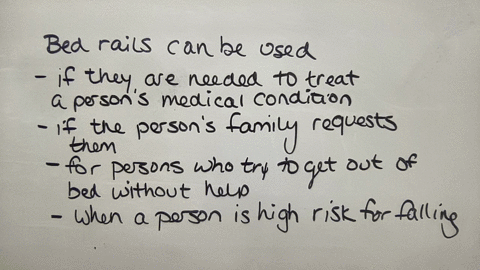 Bed rails can be used
- if they are needed to treat
a person's medical condition
- if the person's family requests
them
- for persons who try to get out of
bed without help
- when a person is high risk for falling